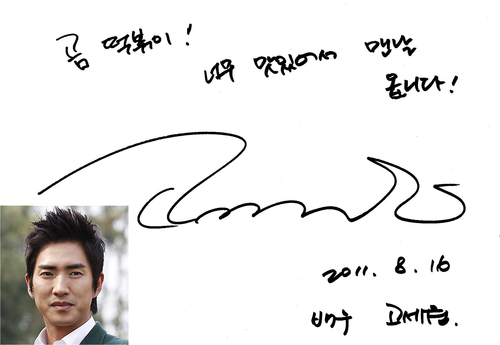 곰 떡볶이!
너무 맛있어서 맨날
옵니다!
2011. 8. 16
배우 고세원.